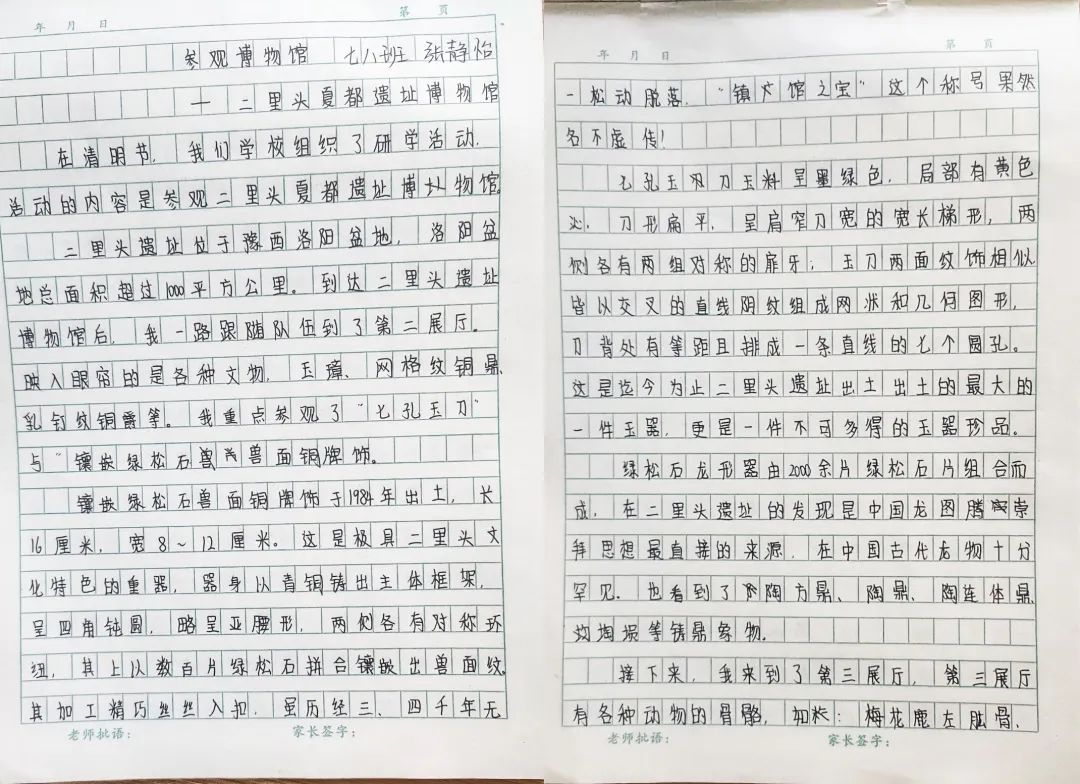 年 月 日
第 页
参观博物馆 七八班 张静怡
— 二里头夏都遗址博物馆
在清明节,我们学校组织了研学活动.
活动的内容是参观二里头夏都遗址博物馆
二里头遗址位于豫西洛阳盆地,洛阳盆
地总面积超过1000平方公里。到达二里头遗址
博物馆后,我一路跟随队伍到了第二展厅。
映入眼帘的是各种文物,玉璋、网格纹铜鼎、
乳钉纹铜爵等。我重点参观了“七孔玉刀”
与“镶嵌绿松石兽面铜牌饰。
镶嵌绿松石兽面铜牌饰于1984年出土,长
16厘米,宽8~12厘米。这是极具二里头文
化特色的重器,器身以青铜铸出主体框架,
呈四角钝圆,略呈亚腰形,两侧各有对称环
纽,其上以数百片绿松石拼合镶嵌出兽面纹.
其加工精巧丝丝入扣,虽历经三、四千年无
老师批语:
家长签字:
年 月 日
第 页
一松动脱落,“镇馆之宝”这个称号果然
名不虚传!
七孔玉刀玉料呈墨绿色,局部有黄色
沁,刀形扁平,呈肩窄刃宽的宽长梯形,两
侧各有两组对称的扉牙;玉刀两面纹饰相似
皆以交叉的直线阴纹组成网状和几何图形,
刀背处有等距且排成一条直线的七个圆孔。
这是迄今为止二里头遗址出土出土的最大的
一件玉器,更是一件不可多得的玉器珍品。
绿松石龙形器由2000余片绿松石片组合而
成,在二里头遗址的发现是中国龙图腾崇
拜思想最直接的来源,在中国古代龙物十分
罕见。也看到了陶方鼎、陶鼎、陶连体鼎
等铸鼎象物.
接下来,我来到了第三展厅,第三展厅
有各种动物的骨骼,如:梅花鹿左肱骨、
老师批语:
家长签字: